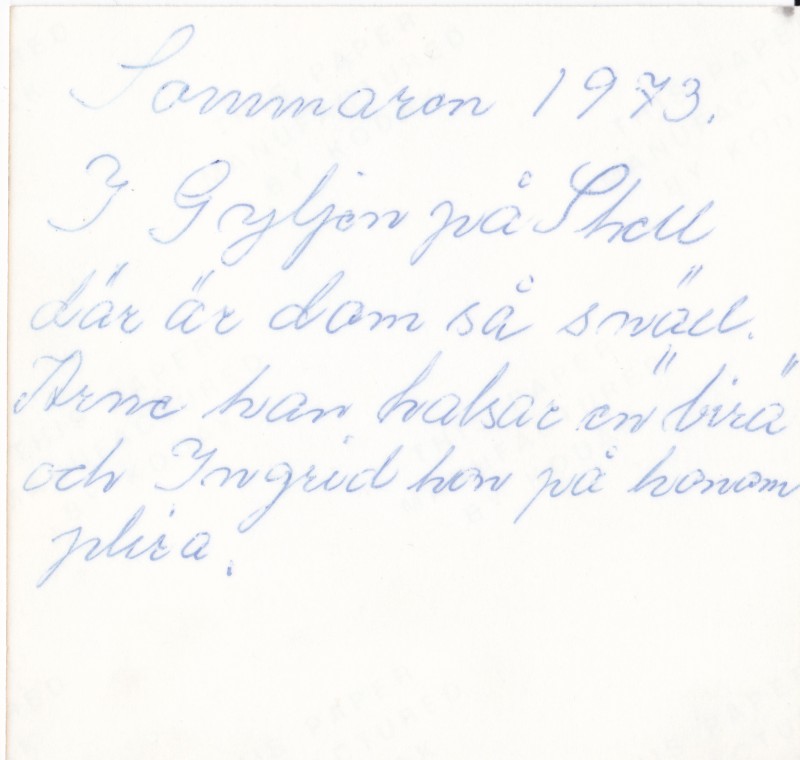 Sommaren 1973.
I Gyljen på Shell
där är dom så snäll.
Arne han halsar en "birä"
och Ingrid hon på honom
plira.